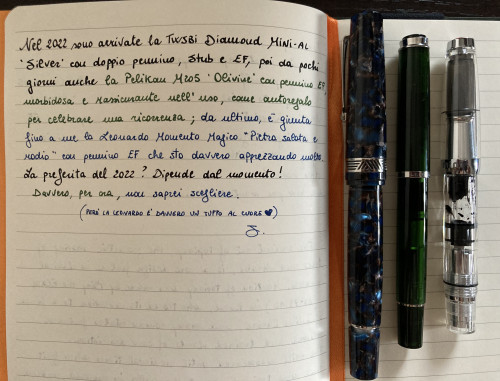 Nel 2022 sono arrivate la TWSBI DIAMOND MINI-AL
'Silver' con doppio pennino, Stub e EF, poi da pochi
giorni anche la Pelikan M205 'Olivine' con pennino EF,
morbidosa e rassicurante nell'uso, come autoregalo
per celebrare una ricorrenza; da ultimo, è giunta
fino a me la Leonardo Momento Magico "Pietra salata e
rodio" con pennino EF che sto davvero apprezzando molto.
La preferita del 2022? Dipende dal momento!
Davvero, per ora, non saprei scegliere.
(PERÒ LA LEONARDO È DAVVERO UN TUFFO AL CUORE ♥)